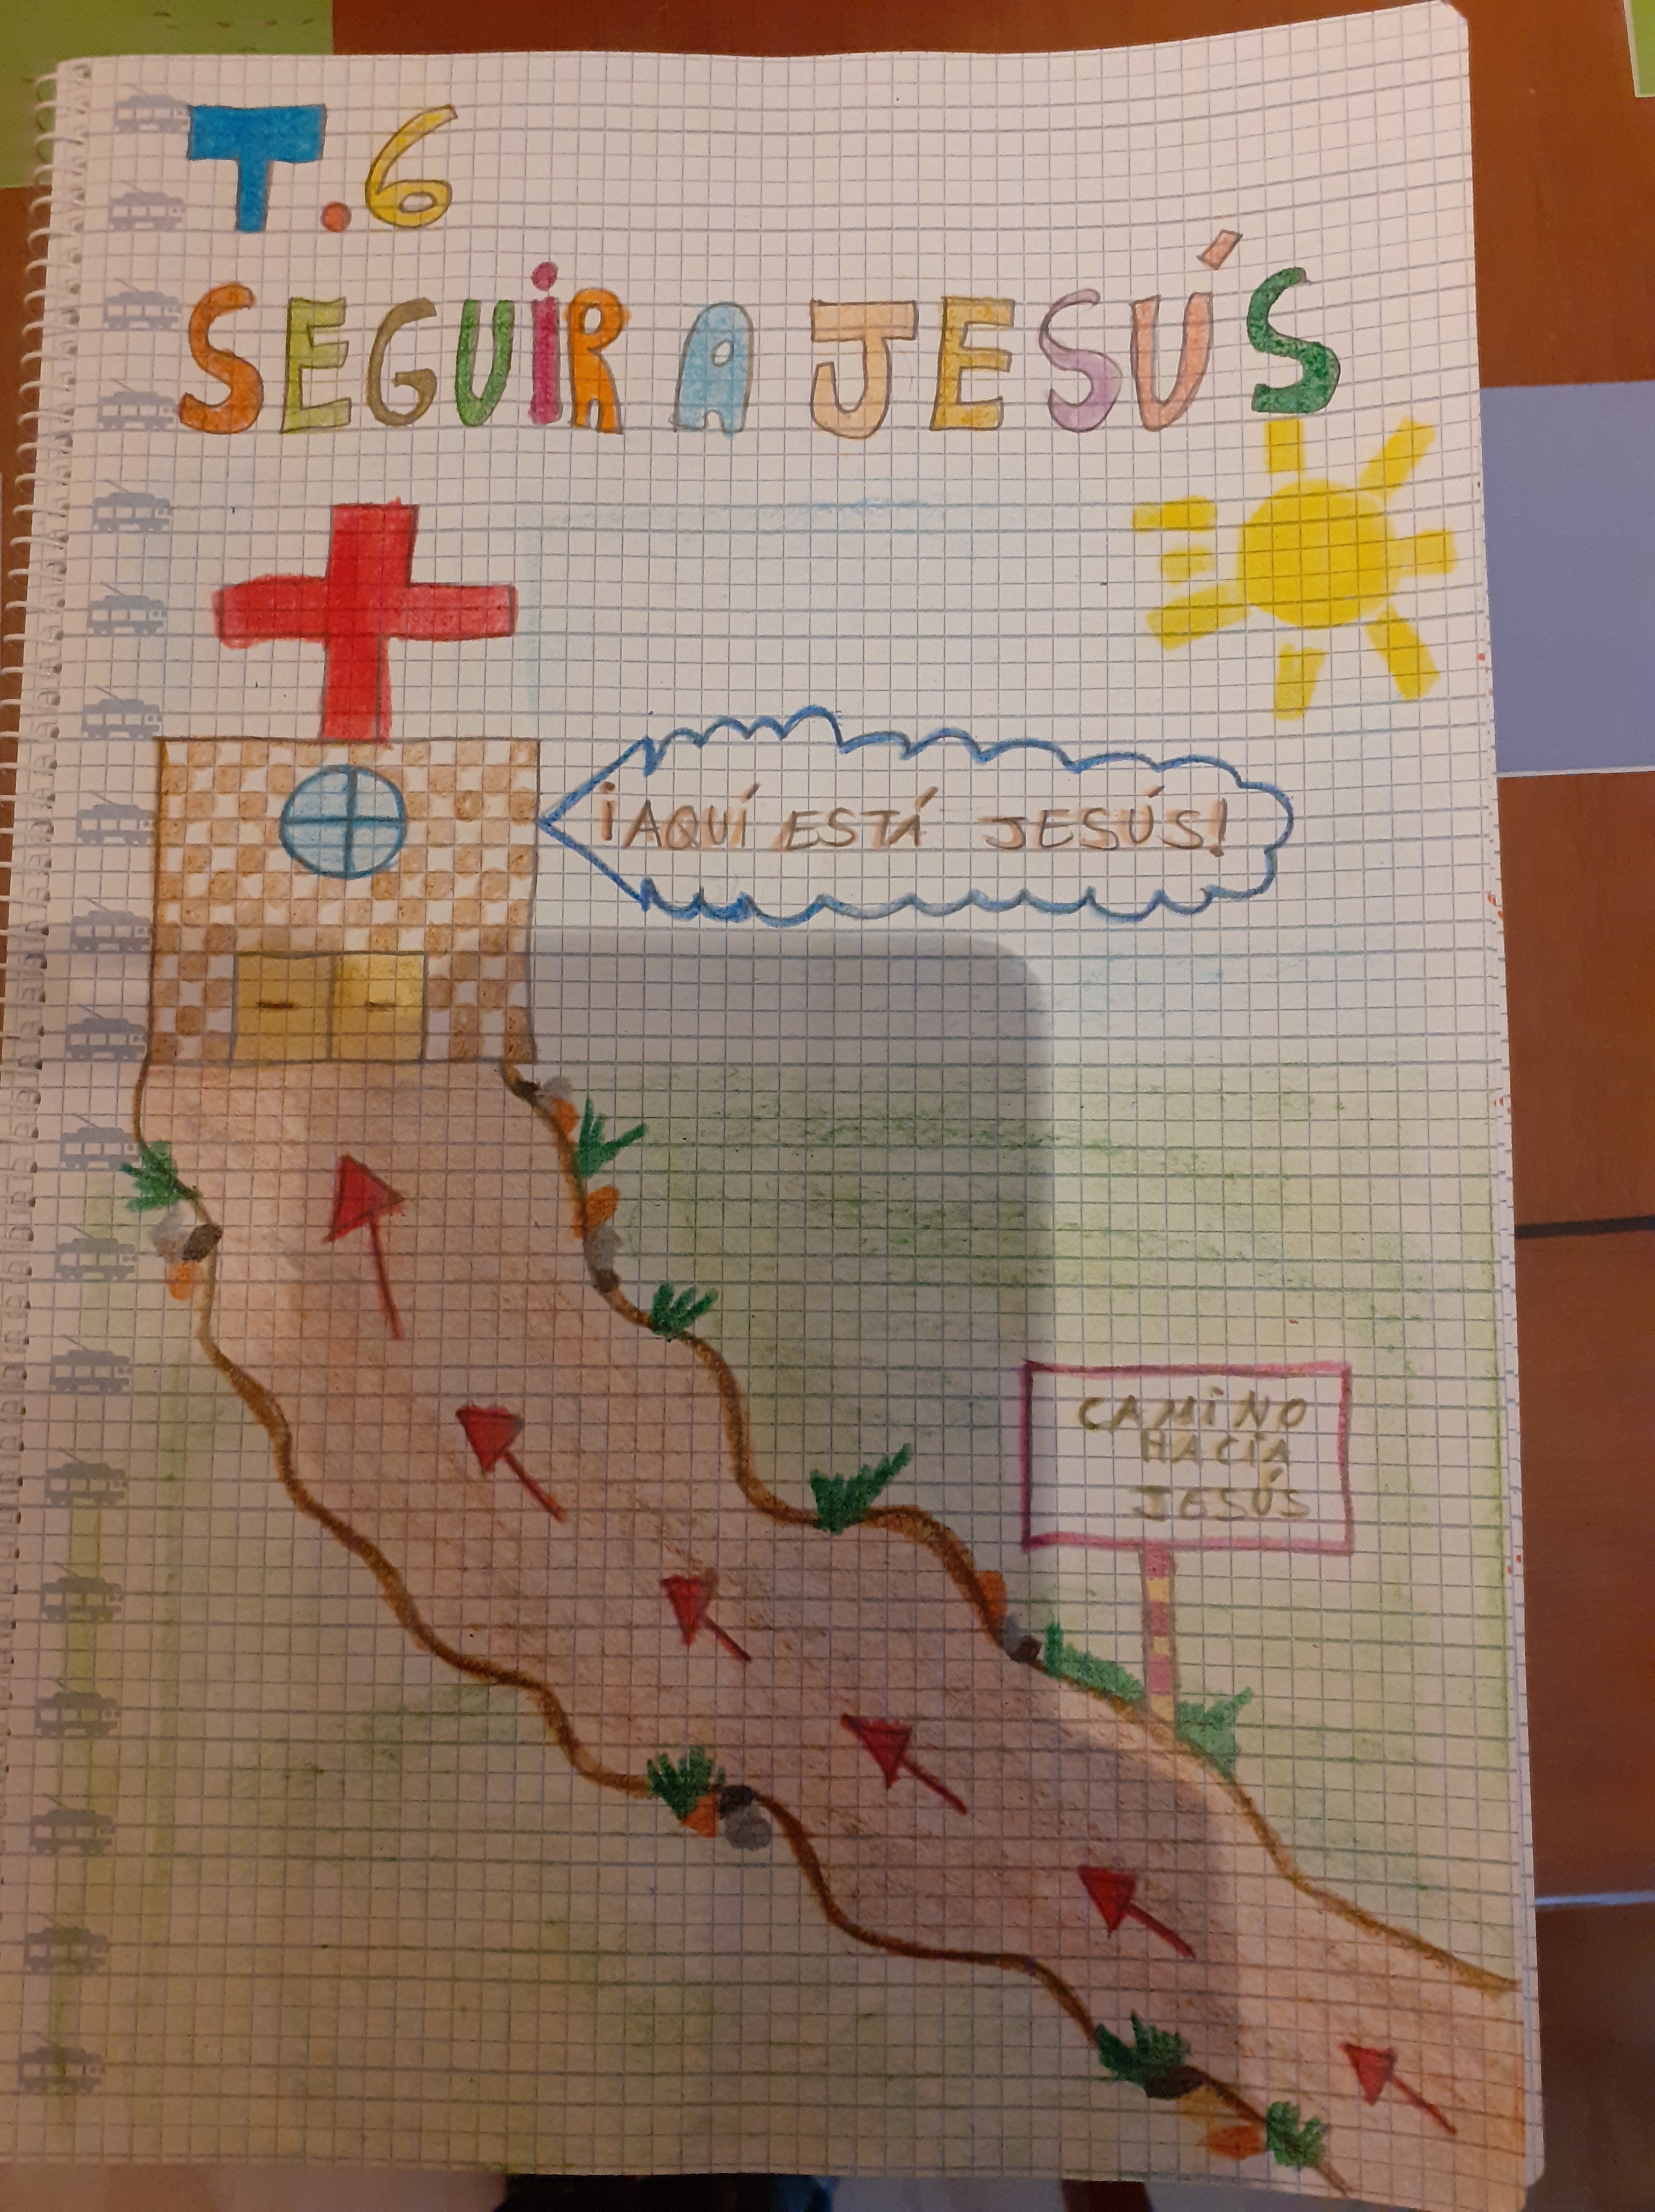 T.6
SEGUiR A JESÚS
¡AQUÍ ESTÁ JESÚS!
CAMiNO
HACIA
JESÚS